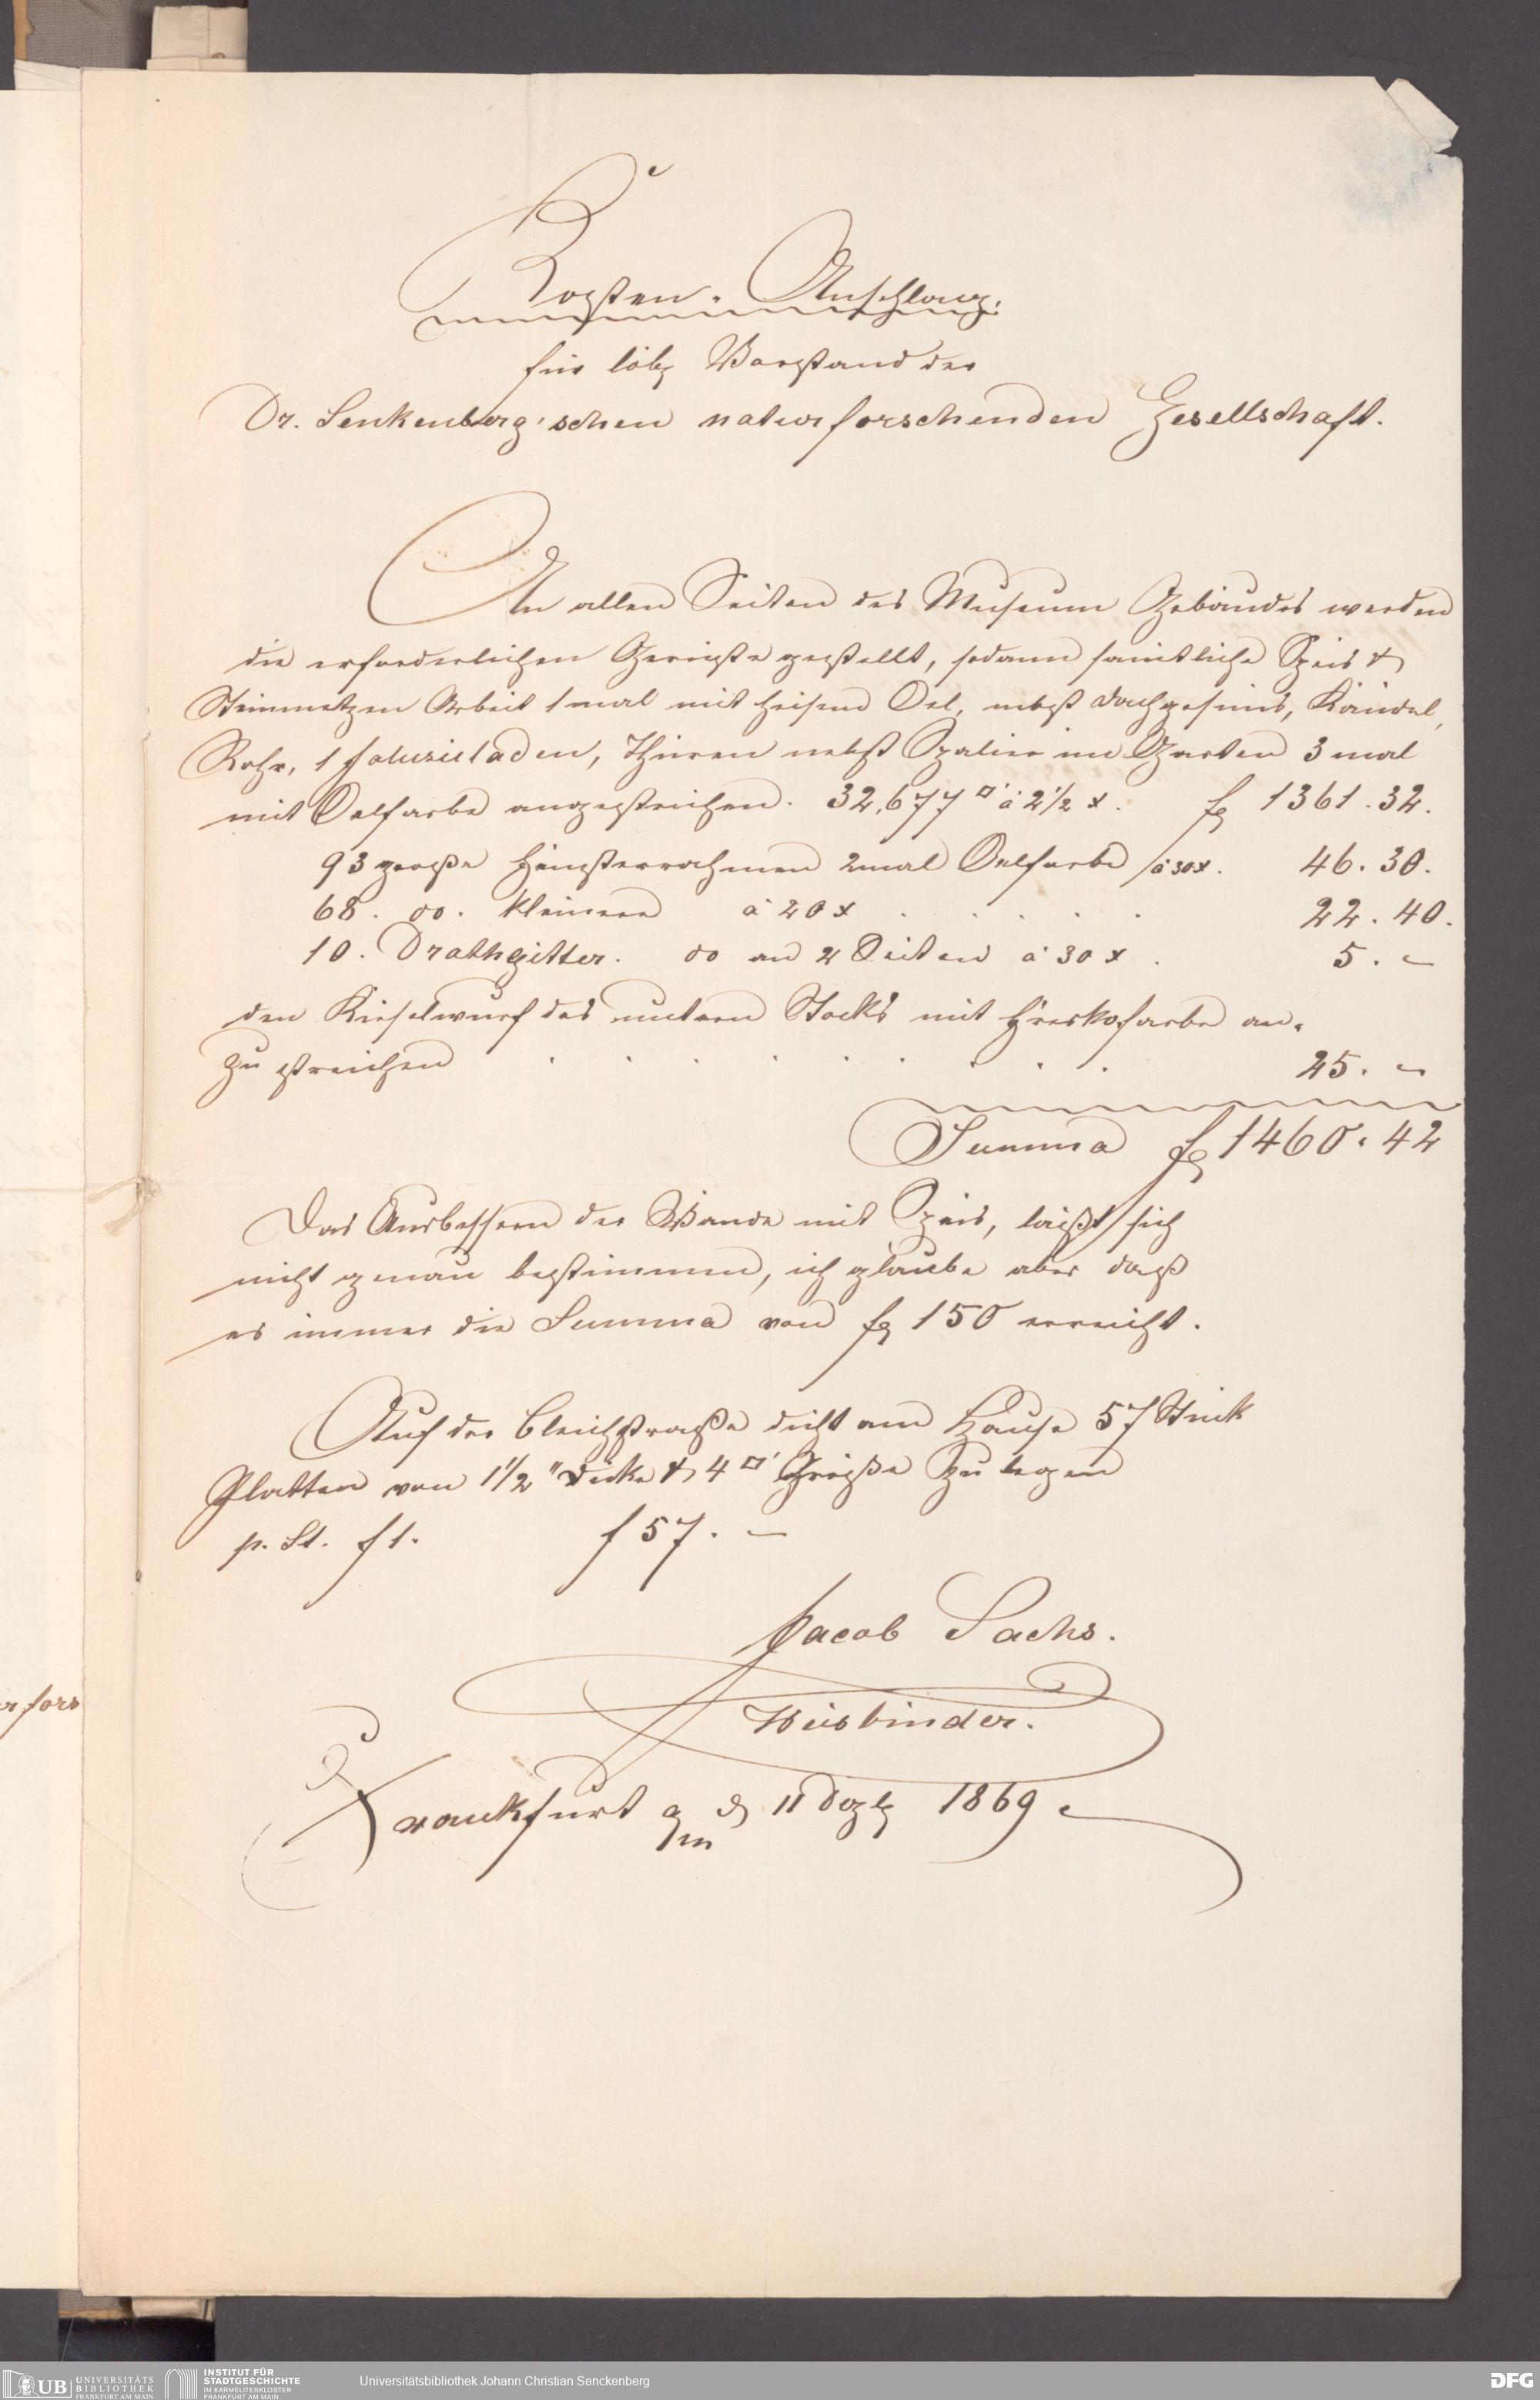 Kosten-Anschlag.
für löbl Vorstand der
Dr. Senkenberg'schen naturforschenden Gesellschaft.
An allen Seiten des Museum Gebäudes werden
die erforderlichen Gerüste gestellt, sodann sämtliche Speis &
Steinmetzen Arbeit 1mal mit heisem Oel, nebst Dachgesims, Kändel,
Rohr, 1 Jalusieladen, Thüren nebst Spalier im Garten 3 mal
mit Oelfarbe angestrichen. 32,677 □' á 2½ x. fl 1361. 32.
93 große Fensterrahmen 2mal Oelfarbe /á 30x. 46. 30.
68. do. kleinere á 20 x 22. 40.
10. Drathgitter. do an 2 Seiten á 30 x . 5. -
den Kieselwurf des untern Stocks mit Freskofarbe an-
zu streichen 25. -
Summa fl 1460. 42
Das Ausbessern der Wände mit Speis, läßt sich
nicht genau bestimmen, ich glaube aber daß
es immer die Summa von fl 150 erreicht.
Auf der Bleichstraße dicht am Hause 57 Stück
Platten von 1½" Dicke & 4 □' Größe zu legen
p. St. f 1. f 57. -
Jacob Sachs.
Weisbinder.
Frankfurt a/m d 11 Dezb 1869
r fors
UB UNIVERSITÄTS
BIBLIOTHEK
FRANKFURT AM MAIN
INSTITUT FÜR
STADTGESCHICHTE
IM KARMELITERKLOSTER
FRANKFURT AM MAIN
Universitätsbibliothek Johann Christian Senckenberg
DFG